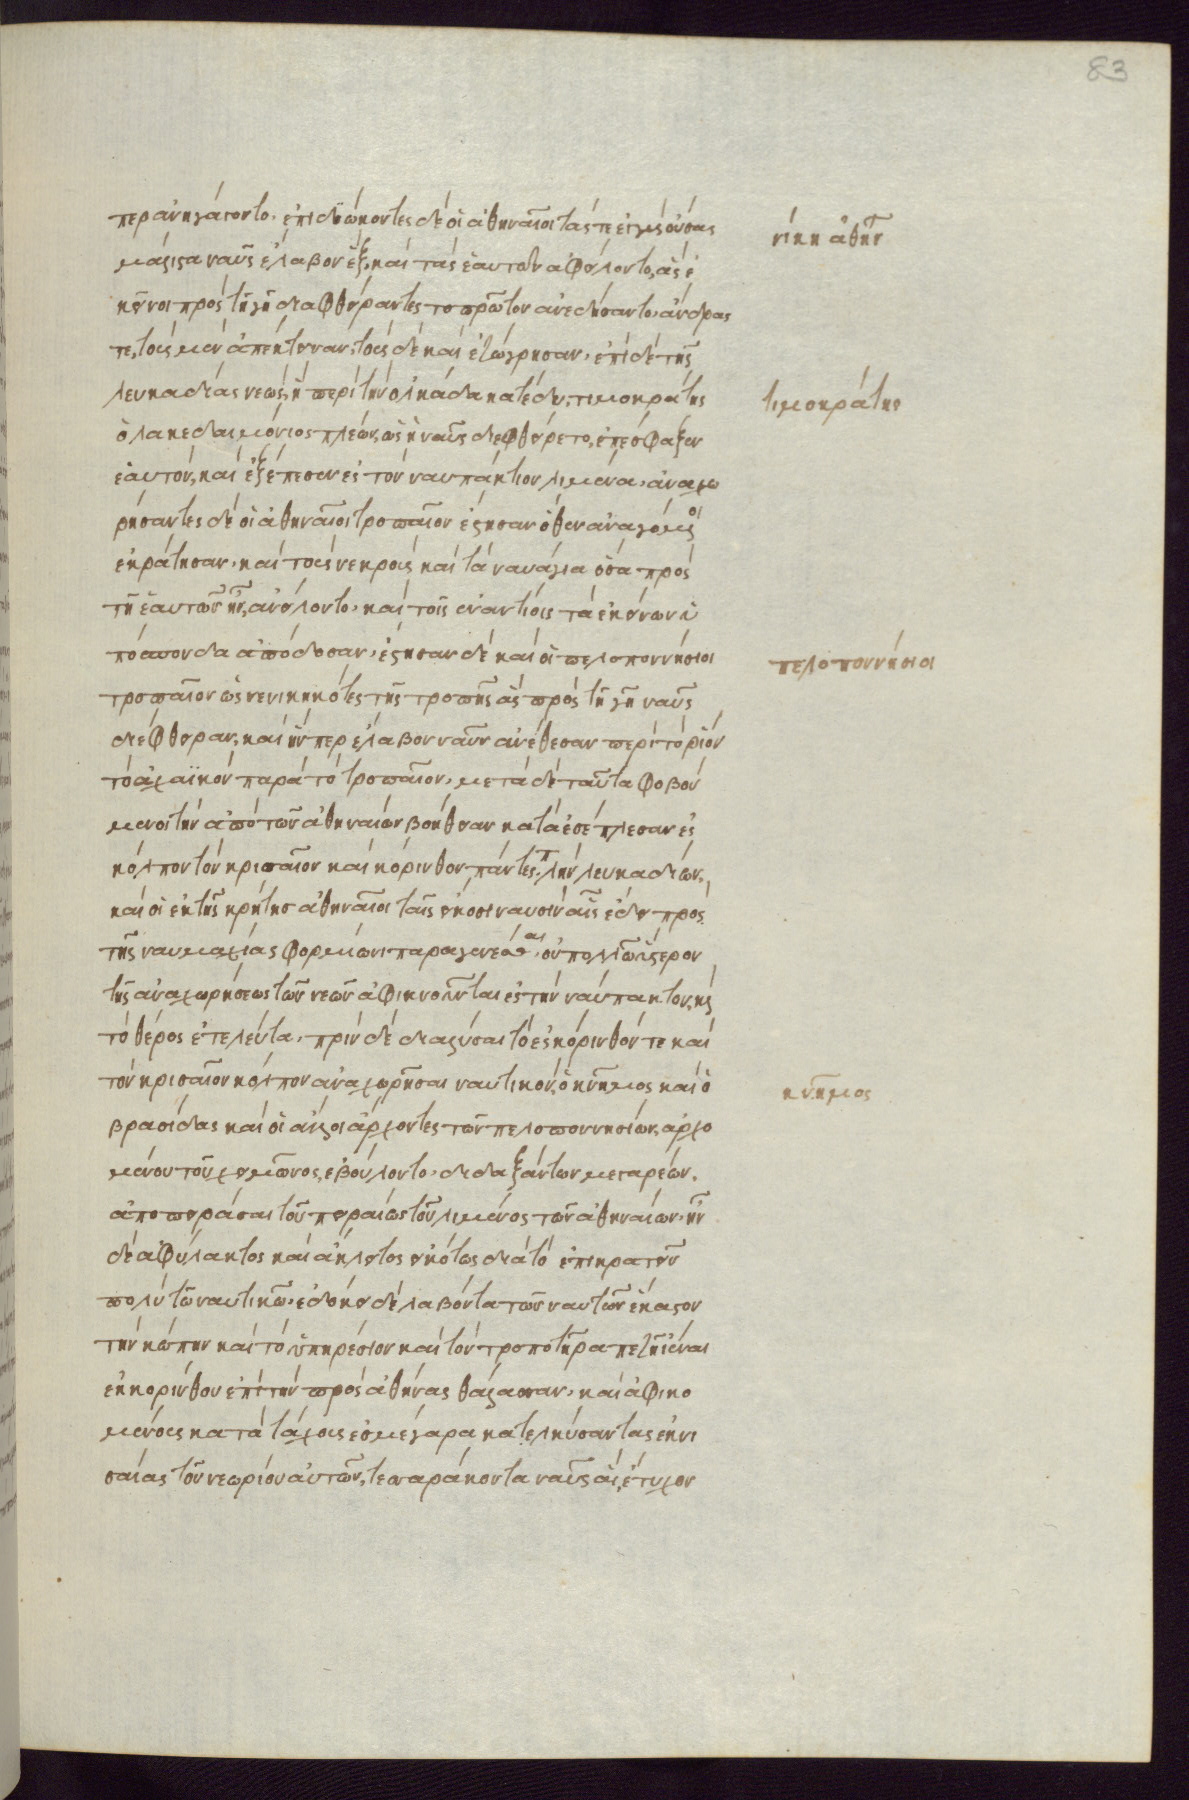 83
περ ἀνηγάγοντο. ἐπιδιώκοντες δὲ οἱ ἀθηναῖοι τάς τε ἐγγὺς οὔσας
νίκη ἀθην
μάλιστα ναῦς ἔλαβον ἓξ, καὶ τὰς ἑαυτῶν ἀφείλοντο, ἃς ἐ
κεῖνοι πρὸς τῇ γῇ διαφθείραντες τοπρῶτον ἀνεδήσαντο. ἄνδρας
τε, τοὺς μὲν ἀπέκτειναν, τοὺς δὲ καὶ ἐζώγρησαν. ἐπὶ δὲ τῆς
λευκαδίας νεὼς, ἣ περὶ τὴν ὁλκάδα κατέδυ, τιμοκράτης
τιμοκράτης
ὁ λακεδαιμόνιος πλέων, ὡς ἡ ναῦς διεφθείρετο, ἐπέσφαξεν
ἑαυτόν, καὶ ἐξέπεσεν ἐς τὸν ναυπάκτιον λιμένα. ἀναχω
ρήσαντες δὲ οἱ ἀθηναῖοι τροπαῖον ἔστησαν ὅθεν ἀναγόμενοι
ἐκράτησαν. καὶ τοὺς νεκροὺς καὶ τὰ ναυάγια ὅσα πρὸς
τῇ ἑαυτῶν ἦν, ἀνείλοντο. καὶ τοῖς ἐναντίοις τὰ ἐκείνων ὑ
πόσπονδα ἀπέδοσαν. ἔστησαν δὲ καὶ οἱ πελοποννήσιοι
πελοποννήσιοι
τροπαῖον ὡς νενικηκότες τῆς τροπῆς ἃς πρὸς τῇ γῇ ναῦς
διέφθειραν, καὶ ἥνπερ ἔλαβον ναῦν ἀνέθεσαν περὶ τὸ ῥίον
τὸ ἀχαϊκὸν παρὰ τὸ τροπαῖον. μετὰ δὲ ταῦτα φοβού
μενοι τὴν ἀπὸ τῶν ἀθηναίων βοήθειαν κατὰ ἐσέπλεσαν ἐς
κόλπον τὸν κρισαῖον καὶ κόρινθον πάντες πλὴν λευκαδίων.
καὶ οἱ ἐκ τῆς κρήτης ἀθηναῖοι ταῖς εἴκοσι ναυσὶν αἷς ἔδει πρὸς
τῆς ναυμαχίας φορμίωνι παραγενέσθαι, οὐ πολλῷ ὕστερον
τῆς ἀναχωρήσεως τῶν νεῶν ἀφικνοῦνται ἐς τὴν ναύπακτον, καὶ
τὸ θέρος ἐτελεύτα. πρὶν δὲ διαλῦσαι τὸ ἐς κόρινθόν τε καὶ
τὸν κρισαῖον κόλπον ἀναχωρῆσαι ναυτικόν, ὁ κνῆμος καὶ ὁ
κνῆμος
βρασίδας καὶ οἱ ἄλλοι ἄρχοντες τῶν πελοποννησίων, ἀρχο
μένου τοῦ χειμῶνος, ἐβούλοντο. διδαξάντων μεγαρέων.
ἀποπειράσαι τοῦ πειραιῶς τοῦ λιμένος τῶν ἀθηναίων. ἦν
δὲ ἀφύλακτος καὶ ἄκλειτος εἰκότως διὰ τὸ ἐπικρατεῖν
πολὺ τῷ ναυτικῷ. ἐδόκει δὲ λαβόντα τῶν ναυτῶν ἕκαστον
τὴν κώπην καὶ τὸ ὑπηρέσιον καὶ τὸν τροποτῆρα πεζῇ ἰέναι
ἐκ κορίνθου ἐπὶ τὴν πρὸς ἀθήνας θάλασσαν. καὶ ἀφικο
μένους κατὰ τάχους ἐς μέγαρα καθελκύσαντας ἐκ νι
σαίας τοῦ νεωρίου αὐτῶν, τεσσαράκοντα ναῦς αἳ, ἔτυχον